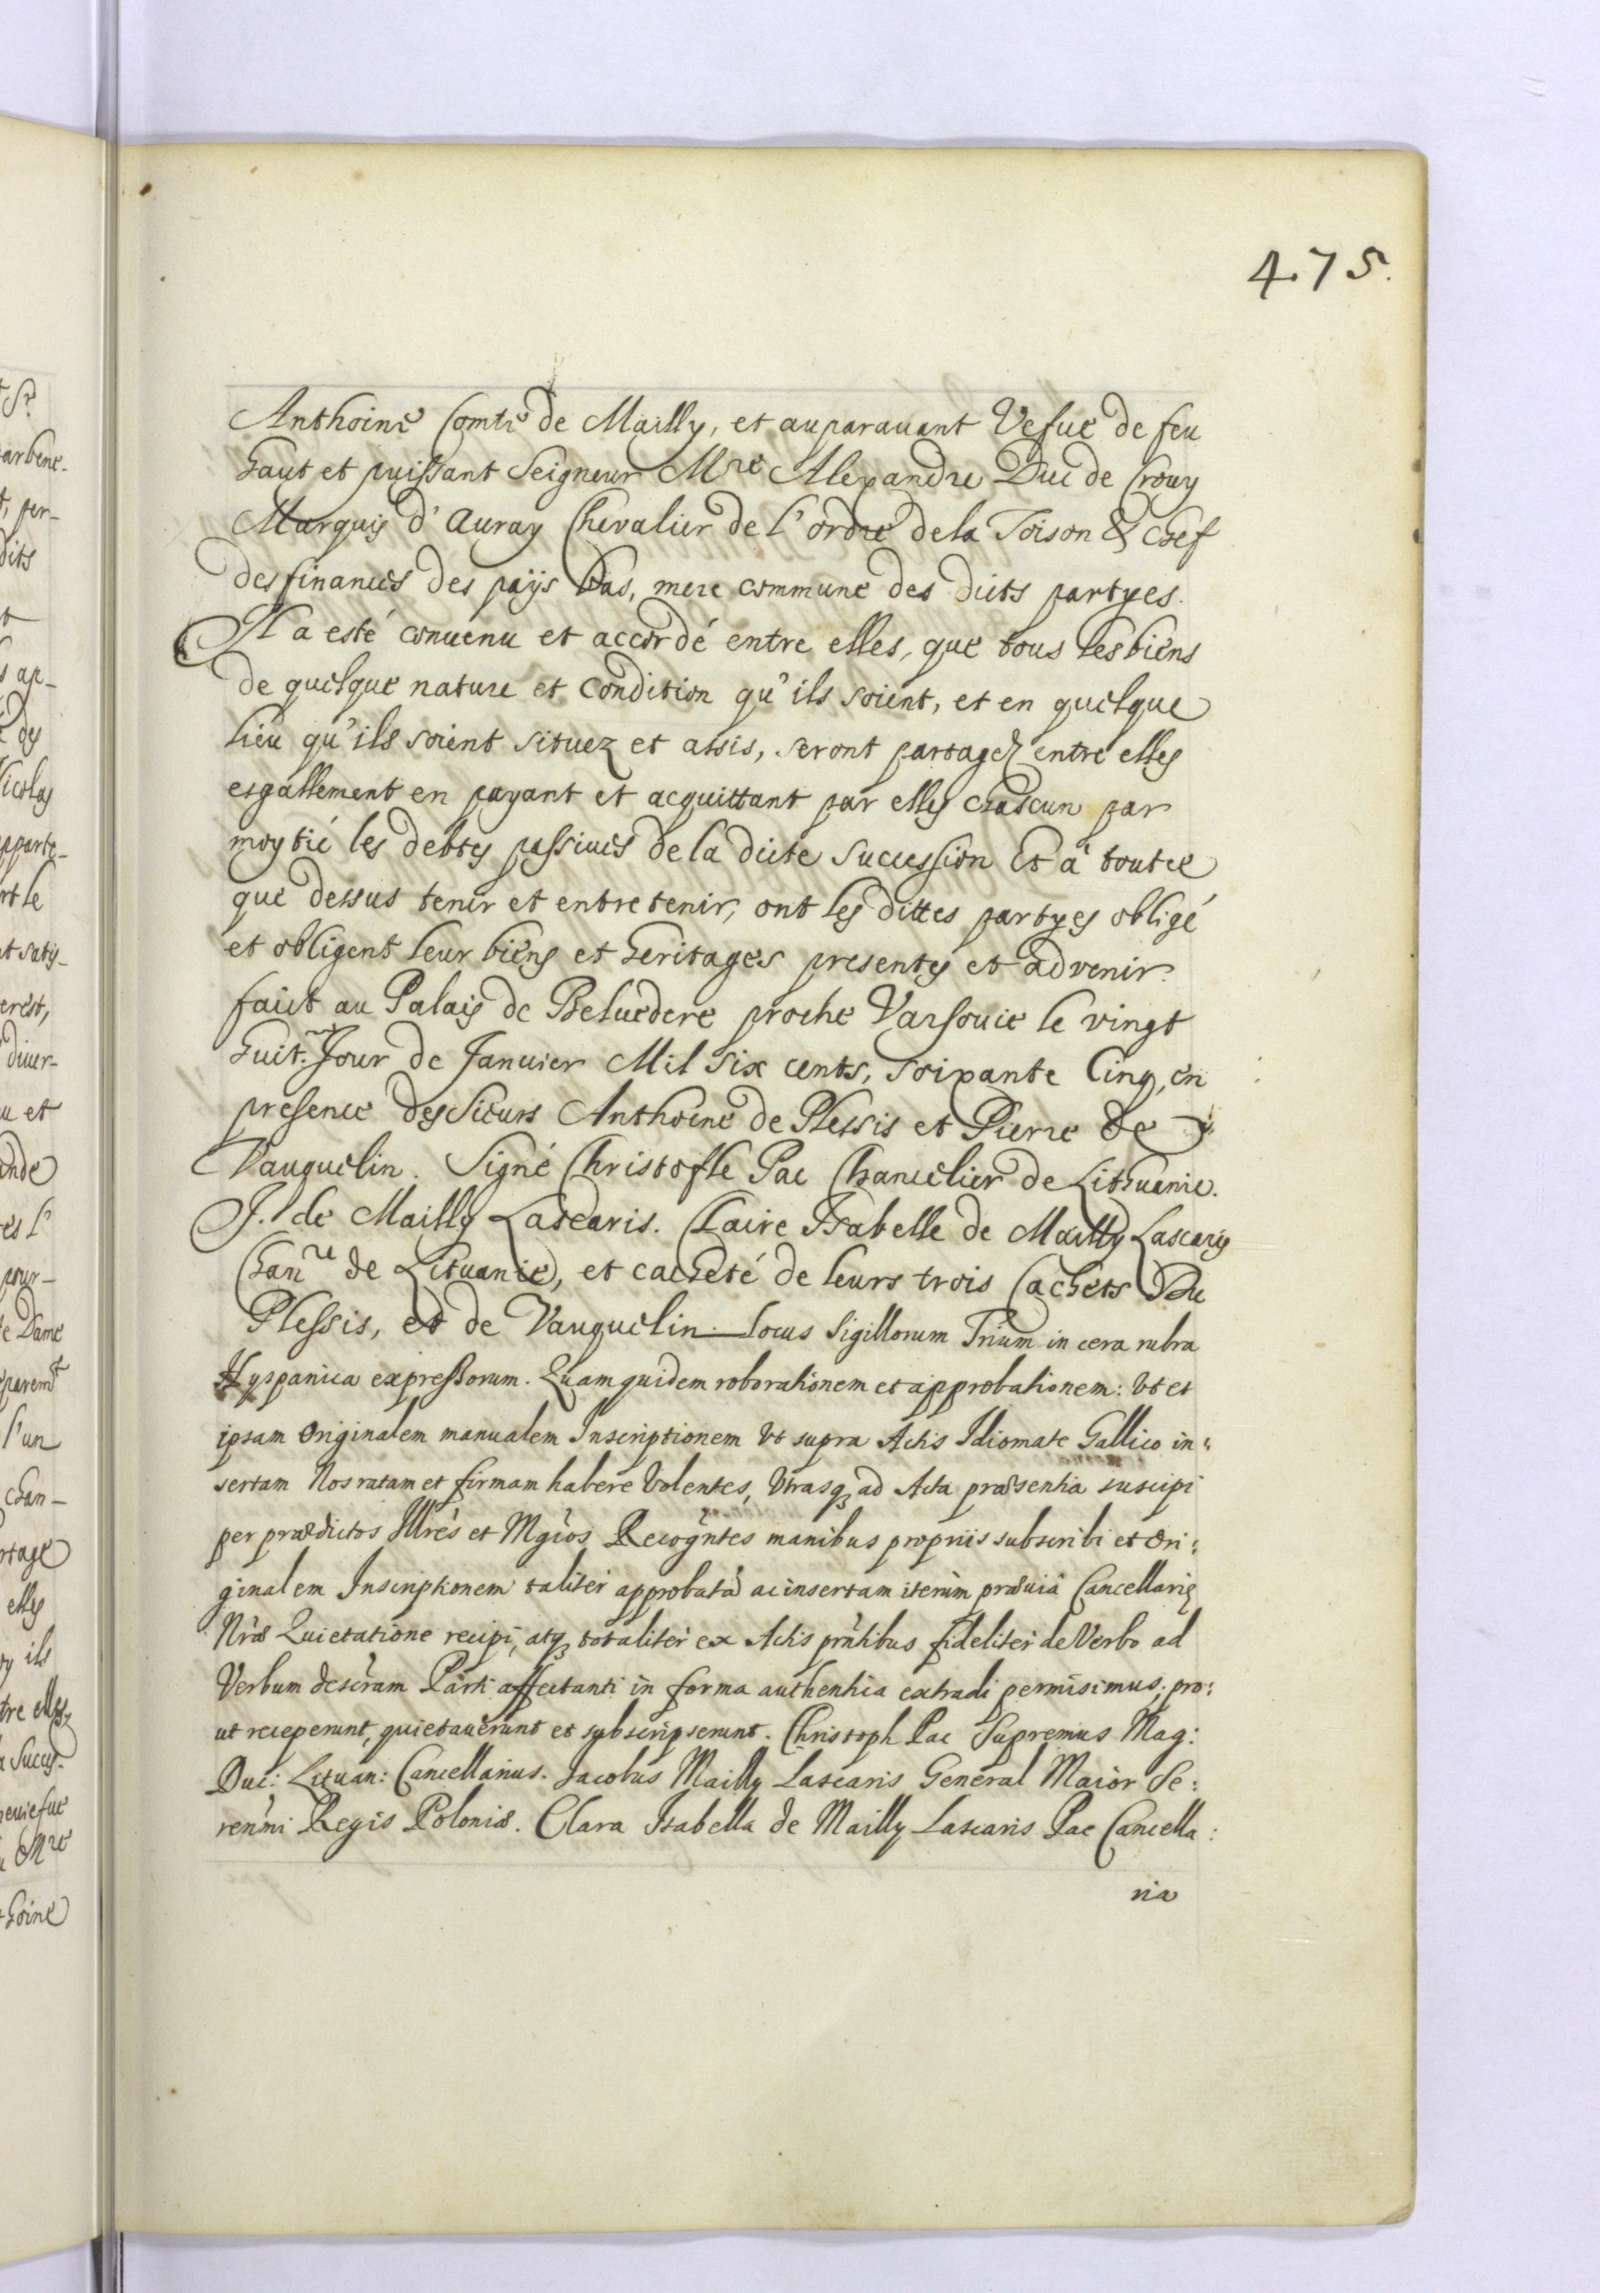 475.
Anthoine Comte de Mailly, et auparauant Vefue de feu
haut et puissant Seigneur Mre Alexandre Duc de Crouy
Marquis d'Auray Chevalier de l'ordre dela Toison & chef
des finances des païjs bas, mere commune des dicts partyes.
Il a esté conuenu et accordé entre elles, que tous les biens
de quelque nature et condition qu'ils soient, et en quelque
lieu qu'ils soient situez et assis, seront partagez entre elles
esgallement en payant et acquittant par elles chascun par
moytié les debtes passiues de la dicte succession Et à toutce
que dessus tenir et entretenir, ont les dittes partyes obligé
et obligent leur biens et heritages presentes et advenir.
faict au Palais de Beluedere proche Varsouie le vingt
huit.me Jour de Januier Mil six cents, soixante Cinq, en
presence des Sieurs Anthoine de Plessis et Pierre de
Vauquelin. Signé Christofle Pac Chancelier de Lithuenie.
J. de Mailly Lascaris. Claire Isabelle de Mailly Lascaris
Chanre de Lituanie, et cacheté de leurs trois Cachets Du
Plessis, et de Vauquelin Locus Sigillorum Trium in cera rubra
Hyspanica expressorum. Quam quidem roborationem et approbationem: Vt et
ipsam Originalem manualem Inscriptionem Vt supra Actis Idiomate Gallico in:
sertam Nos ratam et firmam habere Volentes, Vtrasq ad Acta præsentia suscipi
per prædictos Illrés et Mgcos Recogntes manibus propriis subscribi et Ori:
ginalem Inscriptionem taliter approbatã ac insertam iterùm præuiâ Cancellariæ
Nræ Quietatione recipi, atq totaliter ex Actis prñtibus fideliter de Verbo ad
Verbum descram Parti affectanti in forma authentica extradi permisimus, pro:
ut receperunt, quietauerunt et subscripserunt. Christoph Pac Supremus Mag:
Duc: Lituan: Cancellarius. Jacobus Mailly Lascaris General Maior Se:
renmi Regis Poloniæ. Clara Isabella de Mailly Lascaris Pac Cancella:
ria